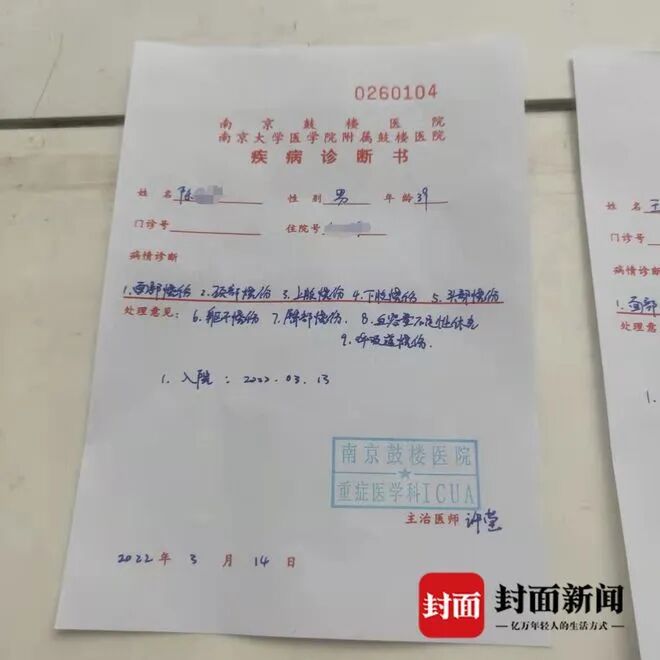 0260104
南京鼓楼医院
南京大学医学院附属鼓楼医院
疾病诊断书
姓名 陈 性别 男 年龄 39
门诊号 住院号
病情诊断
1.面部烧伤 2.颈部烧伤 3.上肢烧伤 4.下肢烧伤 5.头部烧伤
处理意见: 6.躯干烧伤 7.臀部烧伤. 8.血容量不足性休克
9.呼吸道烧伤.
1. 入院: 2022.03.13
南京鼓楼医院
重症医学科ICUA
主治医师
2022年3月14日
姓名 王
门诊号
病情诊断
1.面部
处理意
1.
封面 封面新闻
亿万年轻人的生活方式